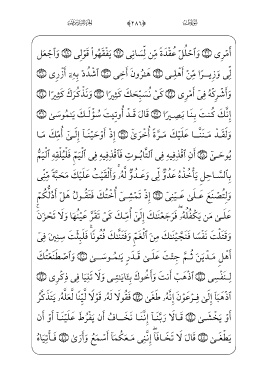 أَمْرِى ۝ وَٱحْلُلْ عُقْدَةً مِّن لِّسَانِى ۝ يَفْقَهُوا۟ قَوْلِى ۝ وَٱجْعَل
لِّى وَزِيرًا مِّنْ أَهْلِى ۝ هَـٰرُونَ أَخِى ۝ ٱشْدُدْ بِهِۦٓ أَزْرِى ۝
وَأَشْرِكْهُ فِىٓ أَمْرِى ۝ كَىْ نُسَبِّحَكَ كَثِيرًا ۝ وَنَذْكُرَكَ كَثِيرًا ۝
إِنَّكَ كُنتَ بِنَا بَصِيرًا ۝ قَالَ قَدْ أُوتِيتَ سُؤْلَكَ يَـٰمُوسَىٰ ۝
وَلَقَدْ مَنَنَّا عَلَيْكَ مَرَّةً أُخْرَىٰٓ ۝ إِذْ أَوْحَيْنَآ إِلَىٰٓ أُمِّكَ مَا
يُوحَىٰٓ ۝ أَنِ ٱقْذِفِيهِ فِى ٱلتَّابُوتِ فَٱقْذِفِيهِ فِى ٱلْيَمِّ فَلْيُلْقِهِ ٱلْيَمُّ
بِٱلسَّاحِلِ يَأْخُذْهُ عَدُوٌّ لِّى وَعَدُوٌّ لَّهُۥ ۚ وَأَلْقَيْتُ عَلَيْكَ مَحَبَّةً مِّنِّى
وَلِتُصْنَعَ عَلَىٰ عَيْنِىٓ ۝ إِذْ تَمْشِىٓ أُخْتُكَ فَتَقُولُ هَلْ أَدُلُّكُمْ
عَلَىٰ مَن يَكْفُلُهُۥ ۖ فَرَجَعْنَـٰكَ إِلَىٰٓ أُمِّكَ كَىْ تَقَرَّ عَيْنُهَا وَلَا تَحْزَنَ ۚ
وَقَتَلْتَ نَفْسًا فَنَجَّيْنَـٰكَ مِنَ ٱلْغَمِّ وَفَتَنَّـٰكَ فُتُونًا ۚ فَلَبِثْتَ سِنِينَ فِىٓ
أَهْلِ مَدْيَنَ ثُمَّ جِئْتَ عَلَىٰ قَدَرٍ يَـٰمُوسَىٰ ۝ وَٱصْطَنَعْتُكَ
لِنَفْسِى ۝ ٱذْهَبْ أَنتَ وَأَخُوكَ بِـَٔايَـٰتِى وَلَا تَنِيَا فِى ذِكْرِى ۝
ٱذْهَبَآ إِلَىٰ فِرْعَوْنَ إِنَّهُۥ طَغَىٰ ۝ فَقُولَا لَهُۥ قَوْلًا لَّيِّنًا لَّعَلَّهُۥ يَتَذَكَّرُ
أَوْ يَخْشَىٰ ۝ قَالَا رَبَّنَآ إِنَّنَا نَخَافُ أَن يَفْرُطَ عَلَيْنَآ أَوْ أَن
يَطْغَىٰ ۝ قَالَ لَا تَخَافَآ ۖ إِنَّنِى مَعَكُمَآ أَسْمَعُ وَأَرَىٰ ۝ فَأْتِيَاهُ